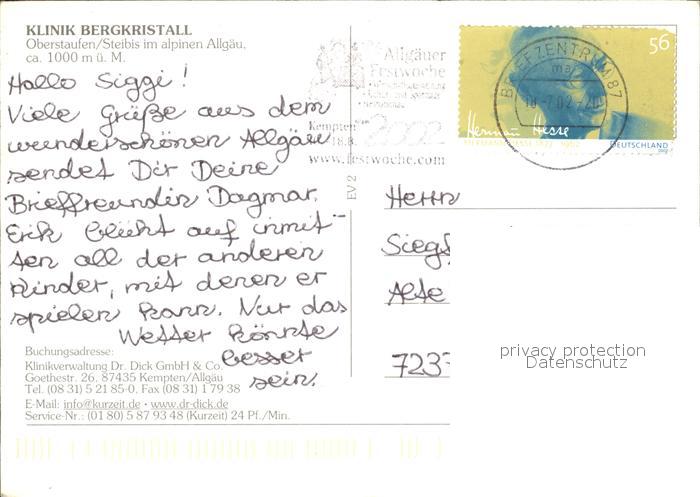 KLINIK BERGKRISTALL
Oberstaufen/Steibis im alpinen Allgäu,
ca. 1000 m ü. M.
Hallo Siggi!
Viele Grüße aus dem
wunderschönen Allgäu
sendet Dir Deine
Brieffreundin Dagmar.
Erik blüht auf inmit-
ten all der anderen
Kinder, mit denen er
spielen kann. Nur das
Wetter könnte
besser
sein.
Buchungsadresse:
Klinikverwaltung Dr. Dick GmbH & Co.
Goethestr. 26, 87435 Kempten/Allgäu
Tel. (08 31) 5 21 85-0, Fax (08 31) 1 79 38
E-Mail: info@kurzeit.de · www.dr-dick.de
Service-Nr.: (01 80) 5 87 93 48 (Kurzeit) 24 Pf./Min.
EV 2
Allgäuer
Festwoche
Kempten
2002
www.festwoche.com
BRIEFZENTRUM 87
ma
56
Hermann Hesse
DEUTSCHLAND
Herrn
Sieg
Alte
723
privacy protection
Datenschutz